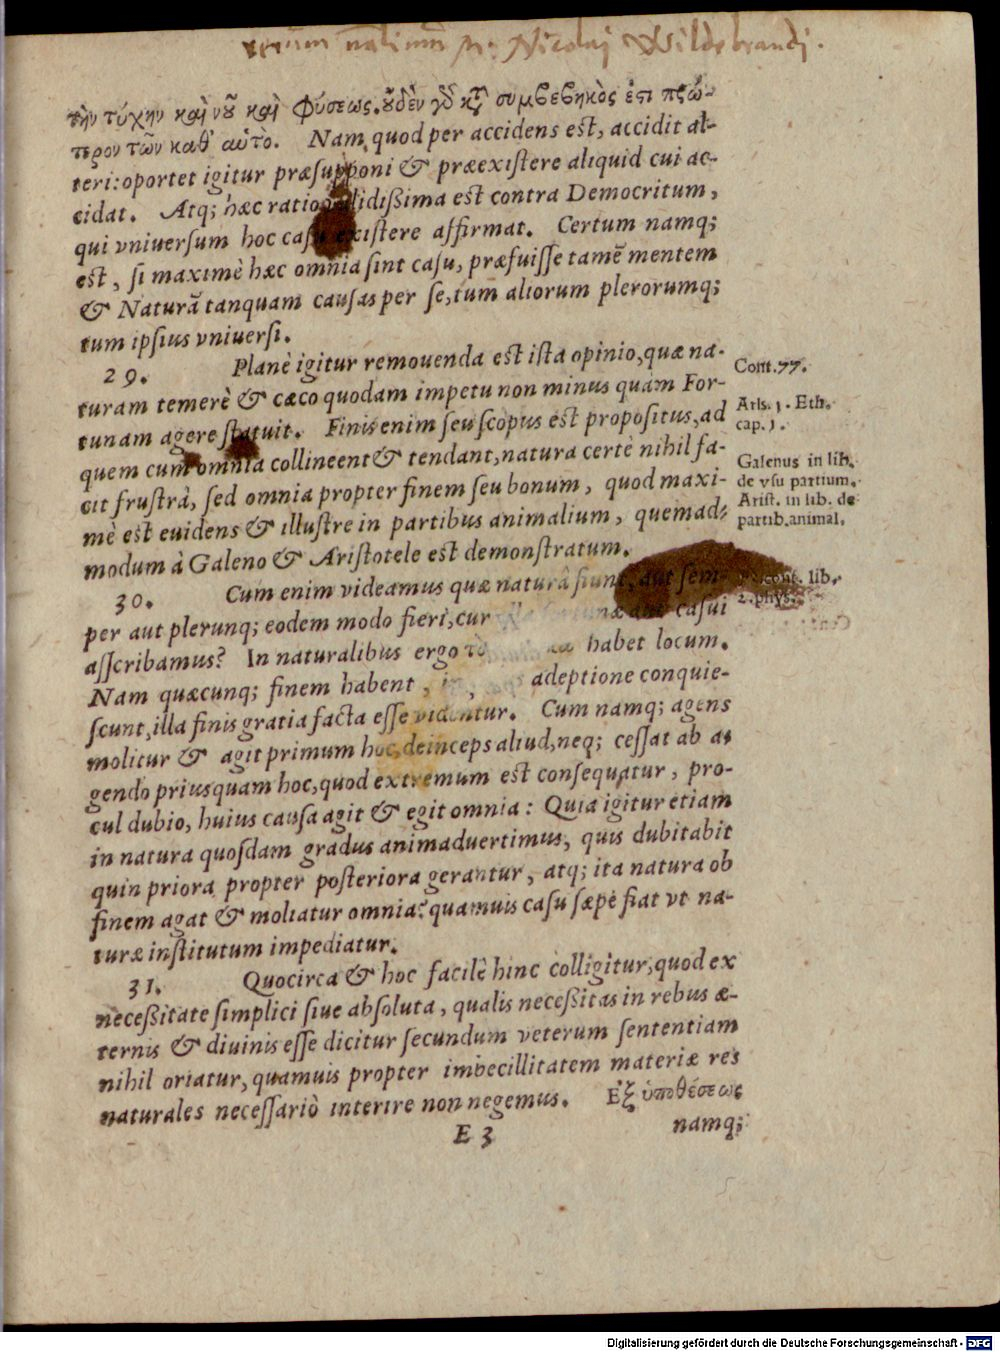 rerum nãliuum M: Nicolaj Wildebrandj.
τὴν τύχην καὶ νοῦ καὶ Φύσεως. οὐδὲν γὸ κτ̀ συμβεβηκὸς ἐςι πρώ-
τερον τῶν καθ' αὑτὸ. Nam quod per accidens est, accidit al-
teri: oportet igitur præsupponi & præexistere aliquid cui ac-
cidat. Atq; hæc ratio validißima est contra Democritum,
qui vniuersum hoc casu existere affirmat. Certum namq;
est, si maximè hæc omnia sint casu, præfuisse tamẽ mentem
& Naturã tanquam causas per se, tum aliorum plerorumq;
tum ipsius vniuersi.
29. Planè igitur remouenda est ista opinio, quæ na-
turam temerè & cæco quodam impetu non minus quam For-
tunam agere statuit. Finis enim seu scopus est propositus, ad
quem cum omnia collineent & tendant, natura certè nihil fa-
cit frustrà, sed omnia propter finem seu bonum, quod maxi-
mè est euidens & illustre in partibus animalium, quemad-
modum à Galeno & Aristotele est demonstratum.
Cont. 77.
Aris. 1. Eth.
cap. 1.
Galenus in lib.
de vsu partium.
Arist. in lib. de
partib. animal.
30. Cum enim videamus quæ naturâ fiunt, aut sem-
per aut plerunq; eodem modo fieri, cur casui
asscribamus? In naturalibus ergo τὸ habet locum.
Nam quæcunq; finem habent, in adeptione conquie-
scunt, illa finis gratia facta esse videntur. Cum namq; agens
molitur & agit primum hoc, deinceps aliud, neq; cessat ab a-
gendo priusquam hoc, quod extremum est consequatur, pro-
cul dubio, huius causa agit & egit omnia: Quia igitur etiam
in natura quosdam gradus animaduertimus, quis dubitabit
quin priora propter posteriora gerantur, atq; ita natura ob
finem agat & moliatur omnia? quamuis casu sæpè fiat vt na-
turæ institutum impediatur.
cont. lib.
2. phys.
31. Quocirca & hoc facilè hinc colligitur, quod ex
neceßitate simplici siue absoluta, qualis neceßitas in rebus æ-
ternis & diuinis esse dicitur secundum veterum sententiam
nihil oriatur, quamuis propter imbecillitatem materiæ res
naturales necessariò interire non negemus. Ἐξ ὑποθέσεως
E 3 namq;
Digitalisierung gefördert durch die Deutsche Forschungsgemeinschaft - DFG